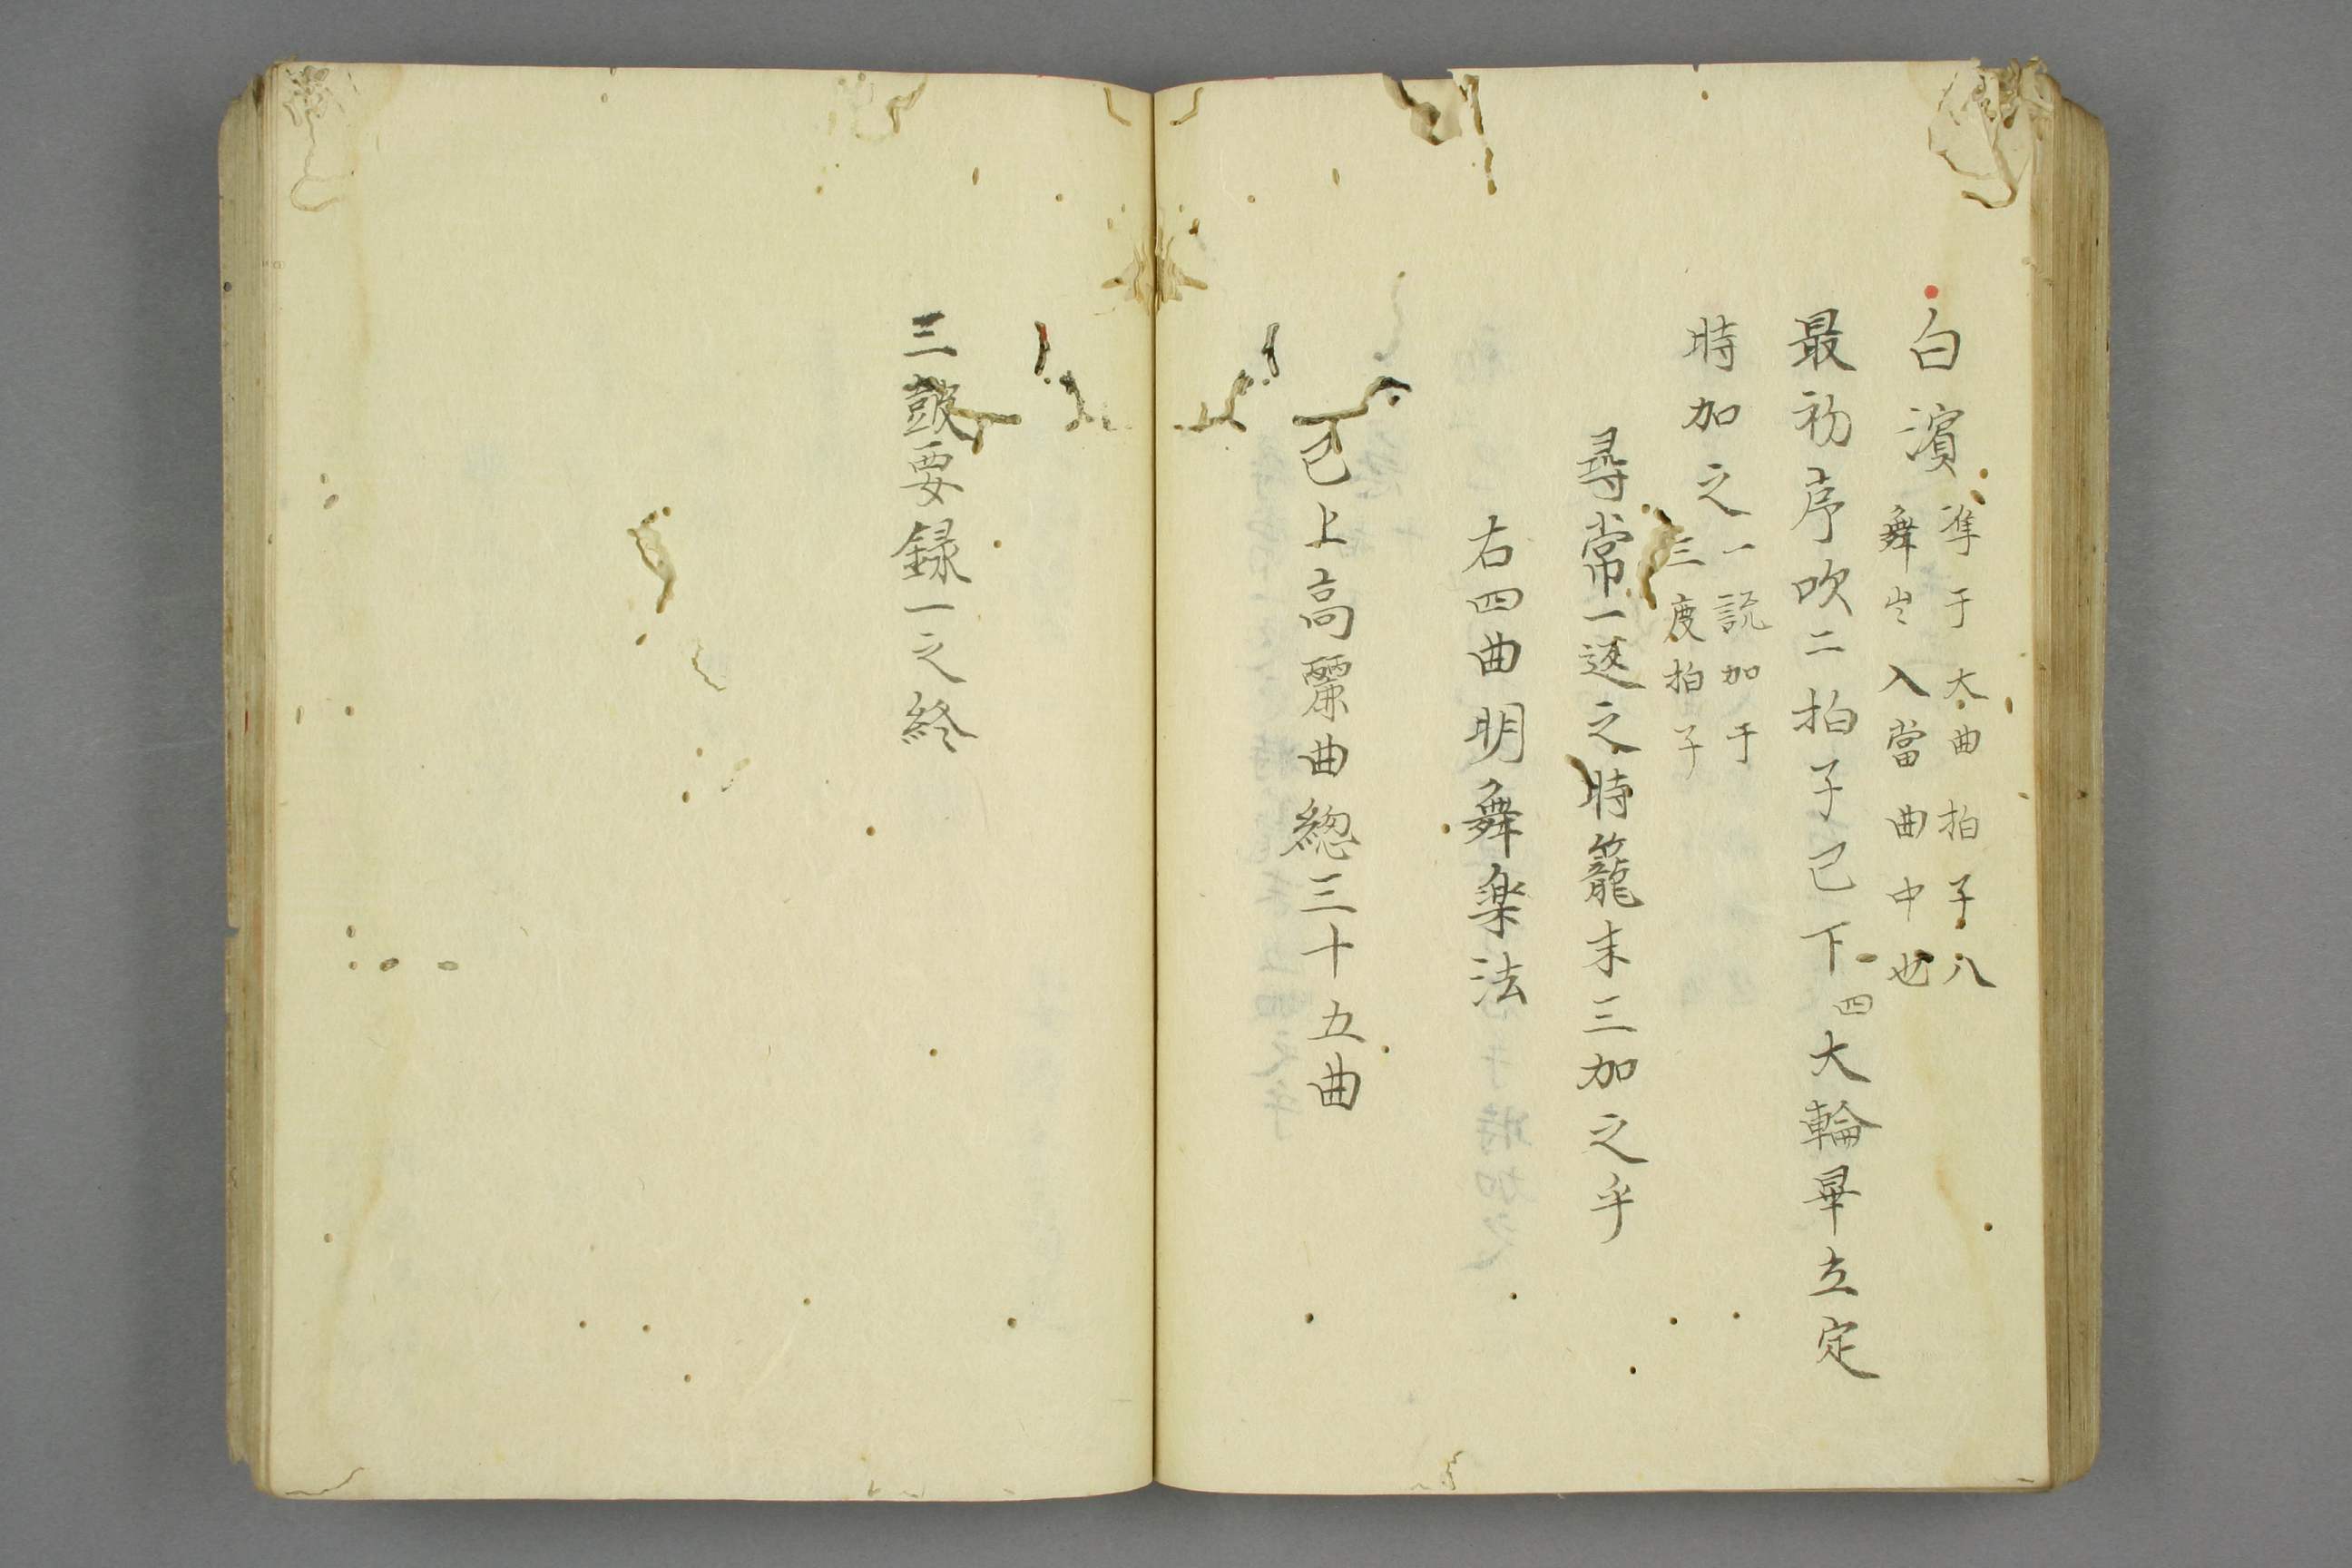 白濱
準于大曲拍子八
舞出入當曲中也
最初序吹二拍子已下四大輪畢立定
時加之
一説加于
三度拍子
尋常一返之時籠末三加之乎
右四曲明舞楽法
已上高麗曲緫三十五曲
三鼓要録一之終